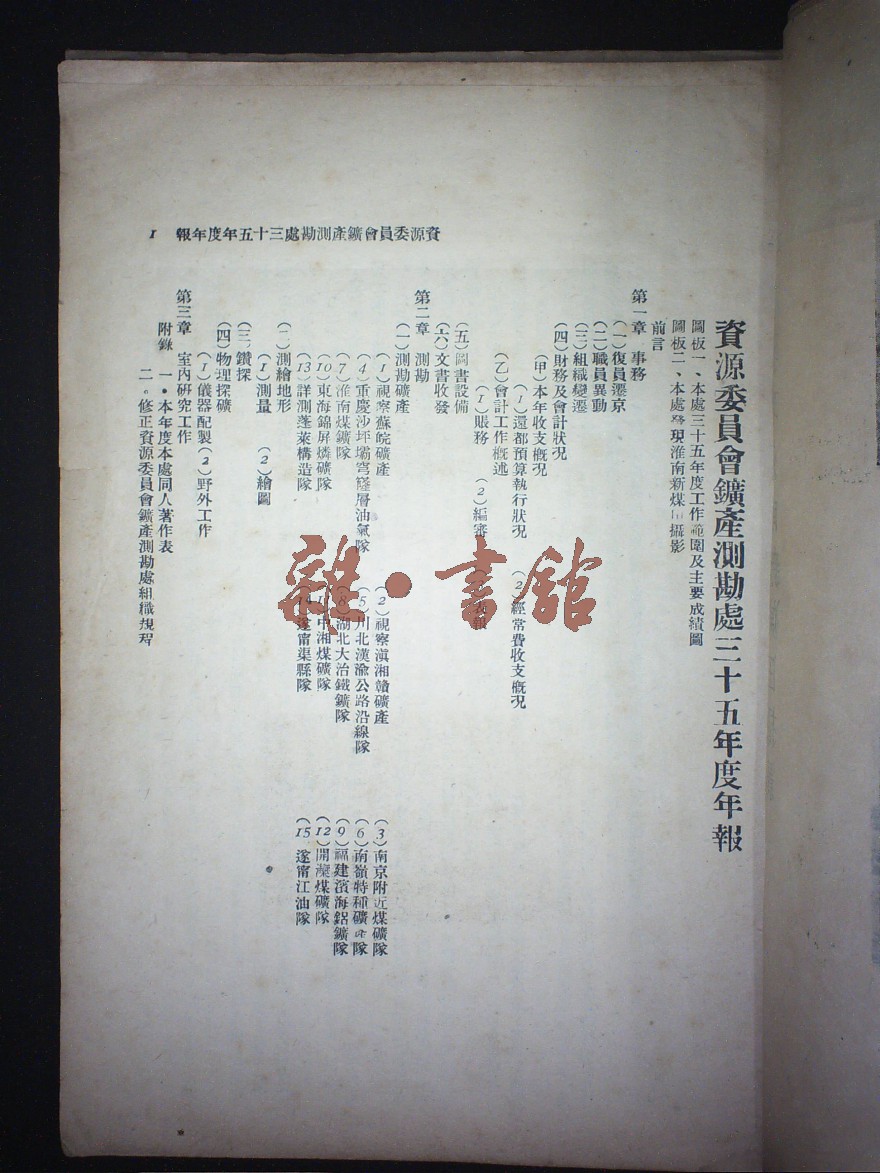 資源委員會鑛產測勘處三十五年度年報
圖板一、本處三十五年度工作範圍及主要成績圖
圖板二、本處發現淮南新煤田攝影
前言
第一章 事務
(一)復員遷京
(二)職員異動
(三)組織變遷
(四)財務及會計狀況
(甲)本年收支概況
(1)還都預算執行狀況 (2)經常費收支概況
(乙)會計工作概述
(1)賬務 (2)編審
(五)圖書設備
(六)文書收發
第二章 測勘
(一)測勘礦產
(1)視察蘇皖礦產 (2)視察滇湘贛礦產 (3)南京附近煤礦隊
(4)重慶沙坪壩穹窿層油氣隊 (5)川北漢渝公路沿線隊 (6)南嶺特種礦產隊
(7)淮南煤鑛隊 (8)湖北大冶鐵鑛隊 (9)福建濱海鋁鑛隊
(10)東海錦屏燐礦隊 中湘煤礦隊 (12)開灤煤礦隊
(13)詳測蓬萊構造隊 遂甯渠縣隊 (15)遂甯江油隊
(二)測繪地形
(1)測量 (2)繪圖
(三)鑽探
(四)物理探礦
(1)儀器配製(2)野外工作
第三章 室內研究工作
附錄 一・本年度本處同人著作表
二。修正資源委員會鑛產測勘處組織規程
資源委員會鑛產測勘處三十五年度年報 I
雜・書館